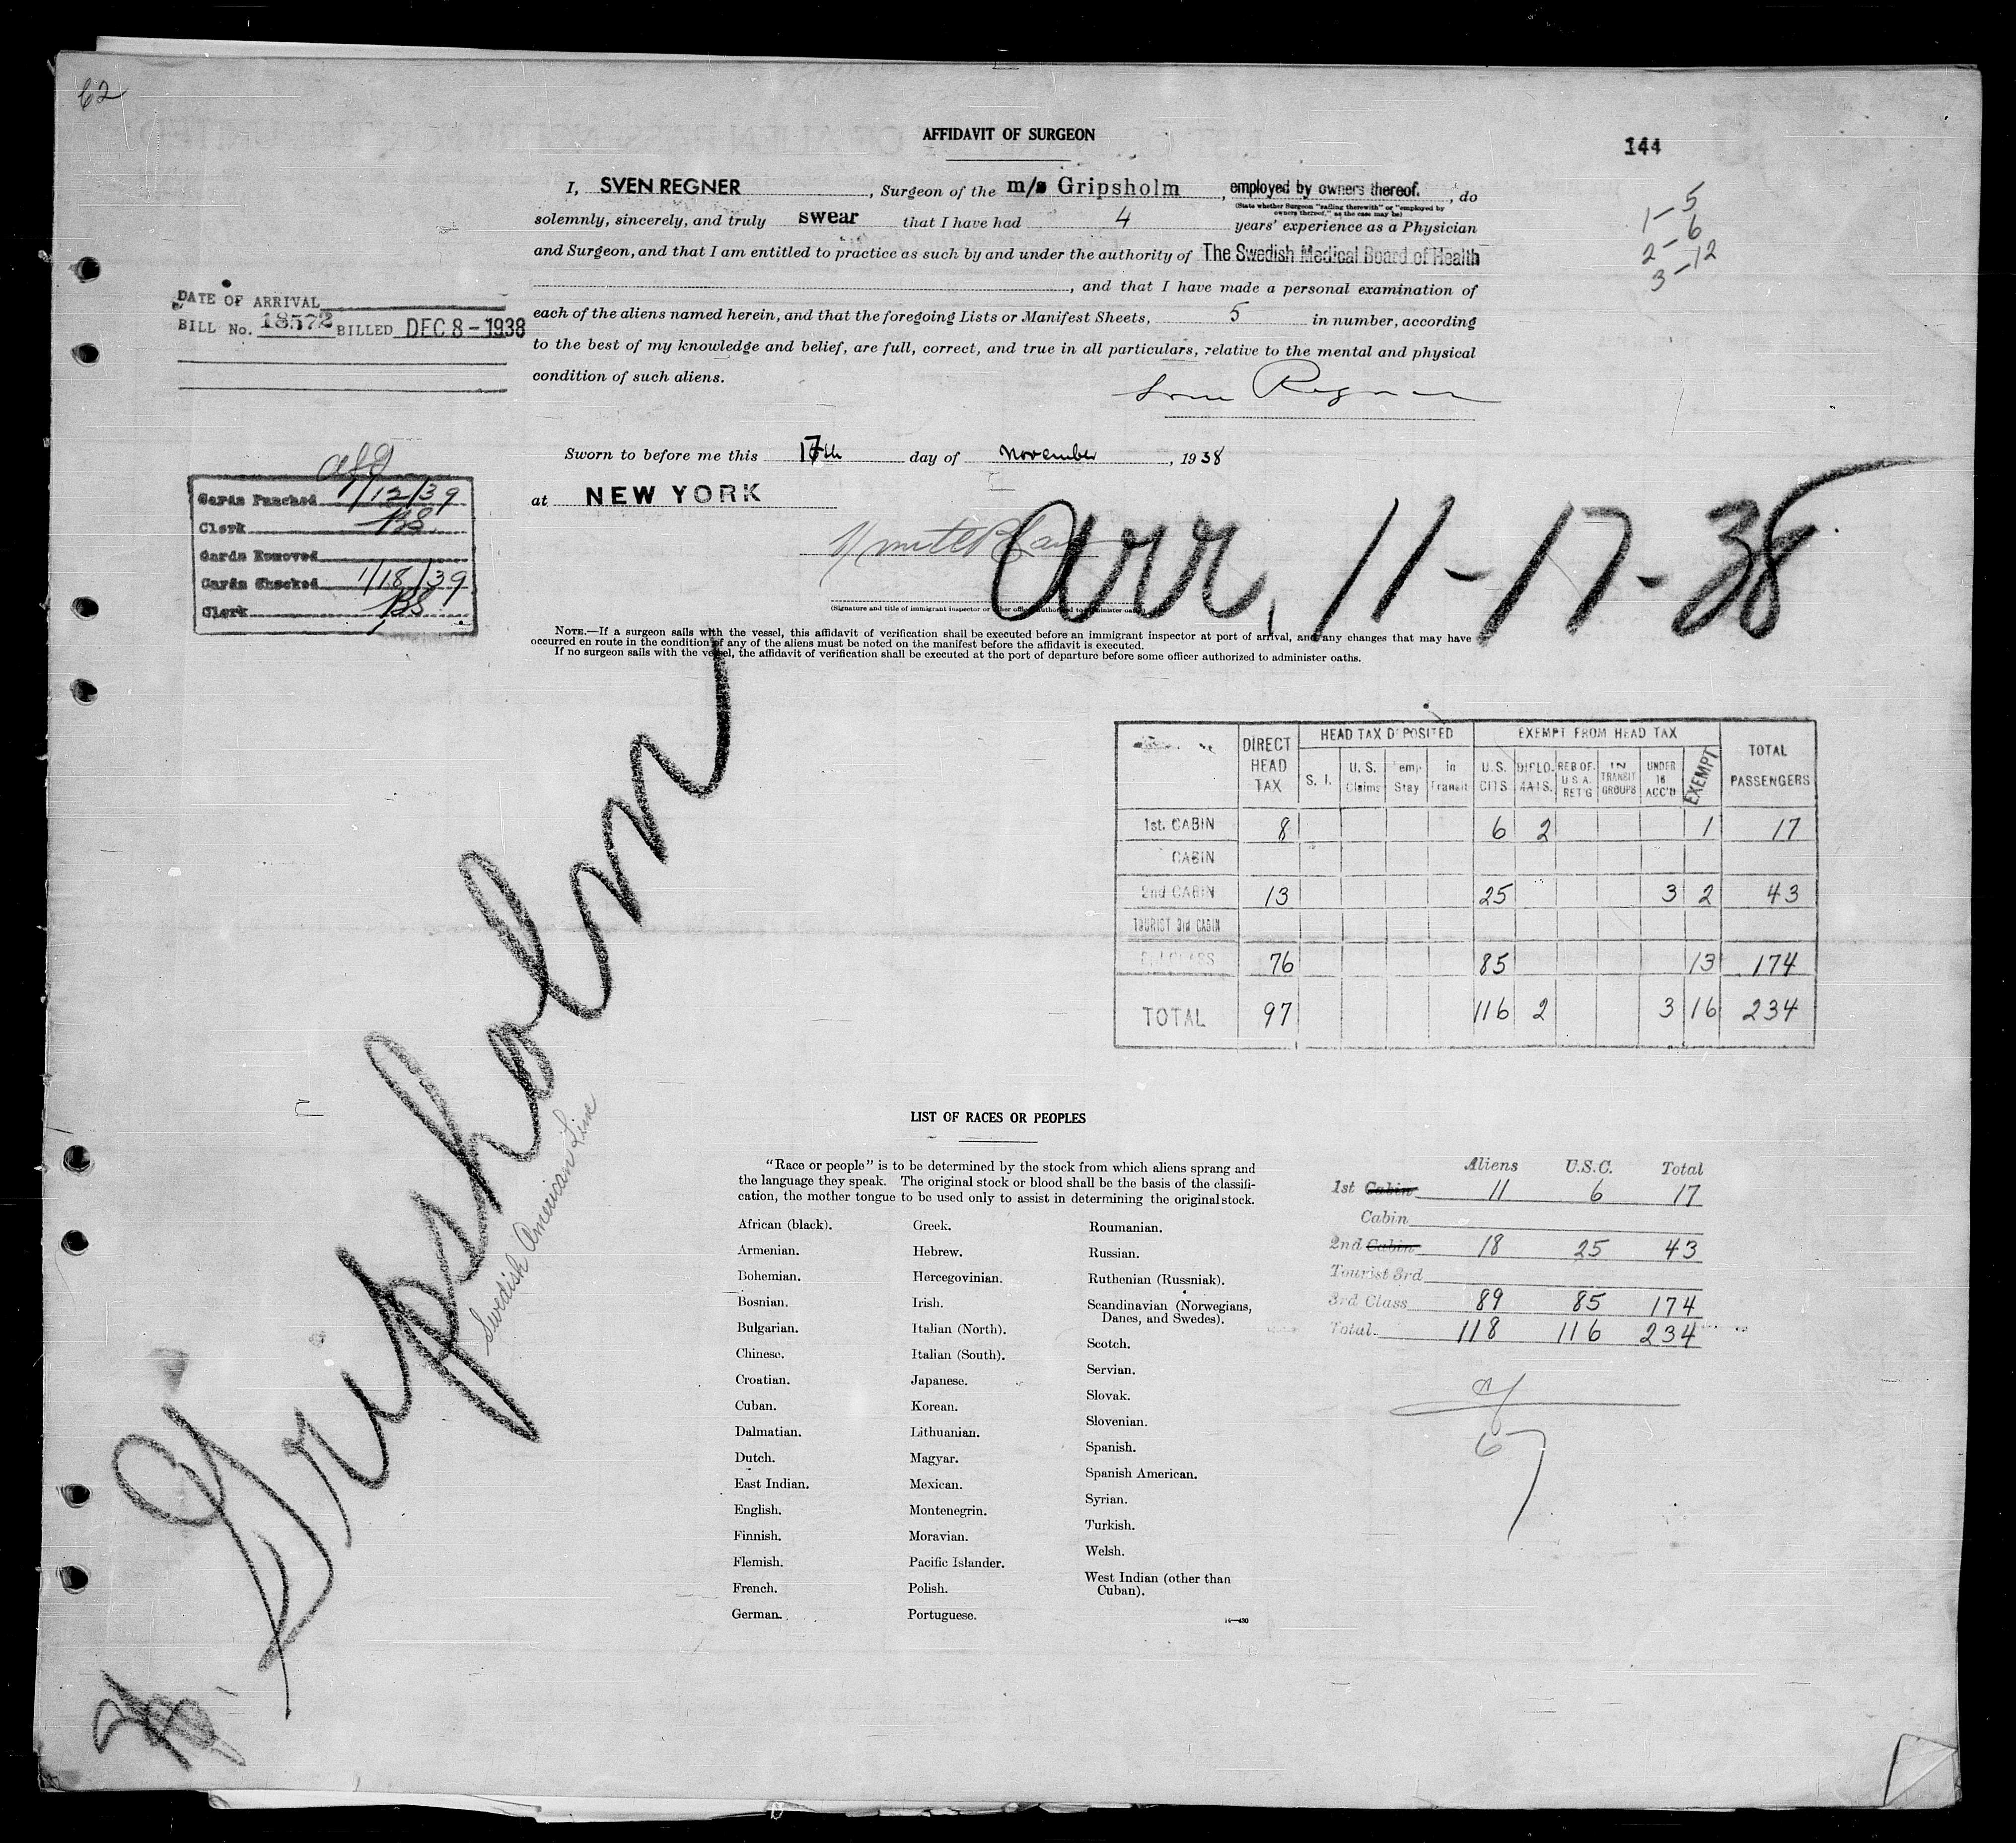 62
AFFIDAVIT OF SURGEON
144
I, SVEN REGNER, Surgeon of the m/s Gripsholm, employed by owners thereof., do
(State whether Surgeon "sailing therewith" or "employed by owners thereof," as the case may be)
solemnly, sincerely, and truly swear that I have had 4 years' experience as a Physician
and Surgeon, and that I am entitled to practice as such by and under the authority of The Swedish Medical Board of Health
, and that I have made a personal examination of
each of the aliens named herein, and that the foregoing Lists or Manifest Sheets, 5 in number, according
to the best of my knowledge and belief, are full, correct, and true in all particulars, relative to the mental and physical
condition of such aliens.
1-5
2-6
3-12
DATE OF ARRIVAL
BILL No. 18572 BILLED DEC 8-1938
Sven Regner
Sworn to before me this 17th day of November, 1938
at NEW YORK
Cards Punched 1/12/39
Clerk BS
Cards Removed
Cards Checked 1/18/39
Clerk BS
Arr, 11-17-38
(Signature and title of immigrant inspector or other officer authorized to administer oaths)
NOTE.—If a surgeon sails with the vessel, this affidavit of verification shall be executed before an immigrant inspector at port of arrival, and any changes that may have
occurred en route in the condition of any of the aliens must be noted on the manifest before the affidavit is executed.
If no surgeon sails with the vessel, the affidavit of verification shall be executed at the port of departure before some officer authorized to administer oaths.
Gripsholm
Swedish American Line
DIRECT HEAD TAX HEAD TAX DEPOSITED EXEMPT FROM HEAD TAX TOTAL PASSENGERS
S. I. U. S. Claims Temp Stay in Transit U.S. CITS DIPLO-MATS. REB OF. U S A. RET'G IN TRANSIT GROUPS UNDER 16 ACC'D EXEMPT
1st. CABIN 8 6 2 1 17
CABIN
2nd CABIN 13 25 3 2 43
TOURIST 3rd CABIN
3rd CLASS 76 85 13 174
TOTAL 97 116 2 3 16 234
LIST OF RACES OR PEOPLES
"Race or people" is to be determined by the stock from which aliens sprang and
the language they speak. The original stock or blood shall be the basis of the classifi-
cation, the mother tongue to be used only to assist in determining the original stock.
African (black).
Armenian.
Bohemian.
Bosnian.
Bulgarian.
Chinese.
Croatian.
Cuban.
Dalmatian.
Dutch.
East Indian.
English.
Finnish.
Flemish.
French.
German.
Greek.
Hebrew.
Hercegovinian.
Irish.
Italian (North).
Italian (South).
Japanese.
Korean.
Lithuanian.
Magyar.
Mexican.
Montenegrin.
Moravian.
Pacific Islander.
Polish.
Portuguese.
Roumanian.
Russian.
Ruthenian (Russniak).
Scandinavian (Norwegians,
Danes, and Swedes).
Scotch.
Servian.
Slovak.
Slovenian.
Spanish.
Spanish American.
Syrian.
Turkish.
Welsh.
West Indian (other than
Cuban).
Aliens U.S.C. Total
1st Cabin 11 6 17
Cabin
2nd Cabin 18 25 43
Tourist 3rd
3rd Class 89 85 174
Total 118 116 234